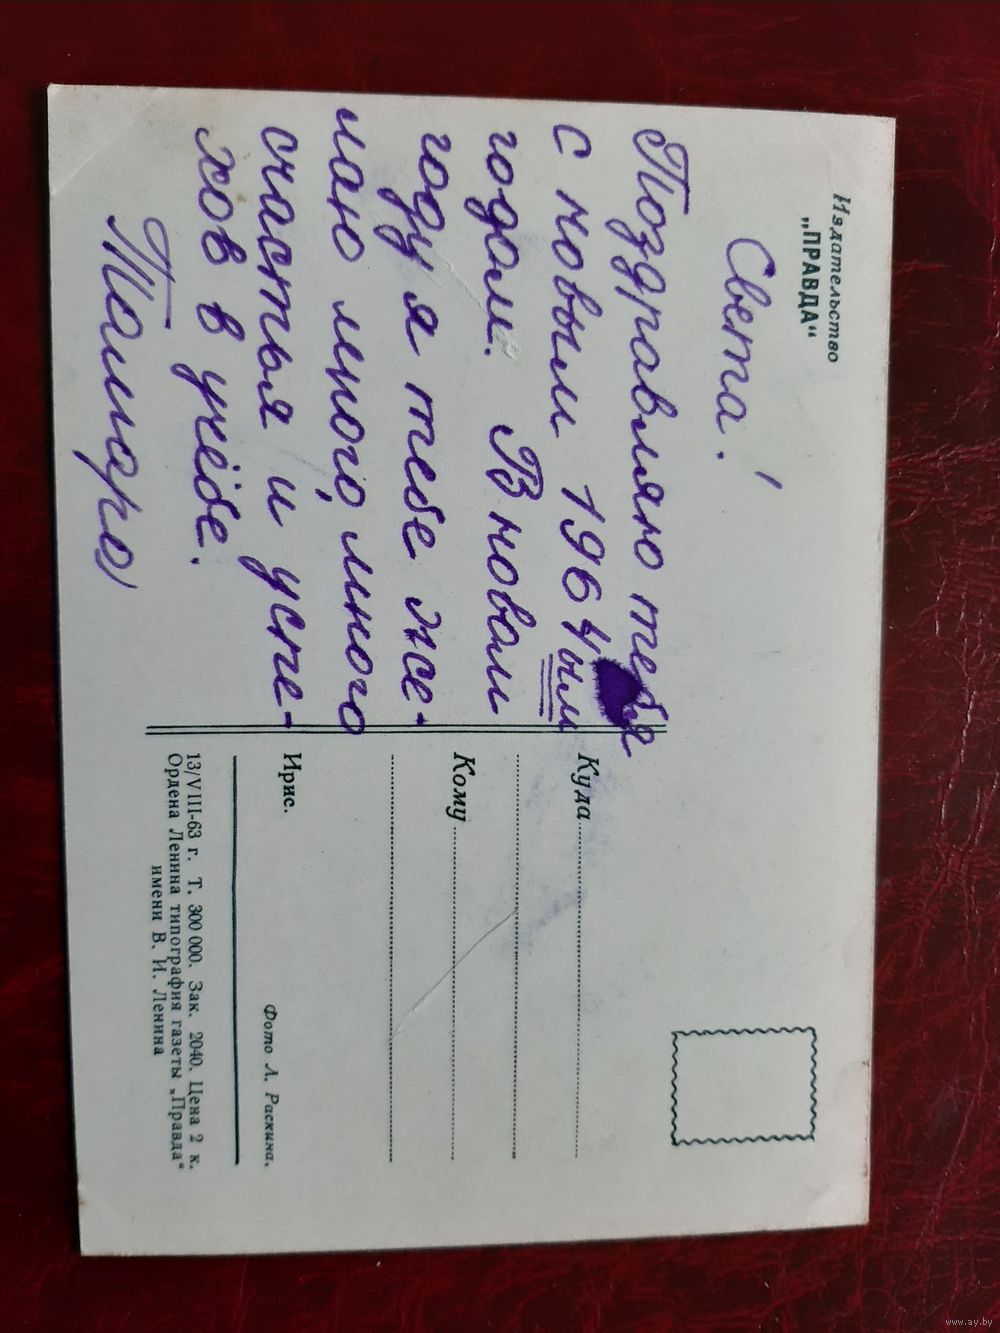 Издательство
„ПРАВДА“
Света!
Поздравляю тебя
с новым 1964ым
годом. В новом
году я тебе же-
лаю много, много
счастья и успе-
хов в учёбе.
Тамара
Куда
Кому
Ирис.
Фото Л. Раскина.
13/VIII-63 г. Т. 300 000. Зак. 2040. Цена 2 к.
Ордена Ленина типография газеты „Правда“
имени В. И. Ленина
www.ay.by